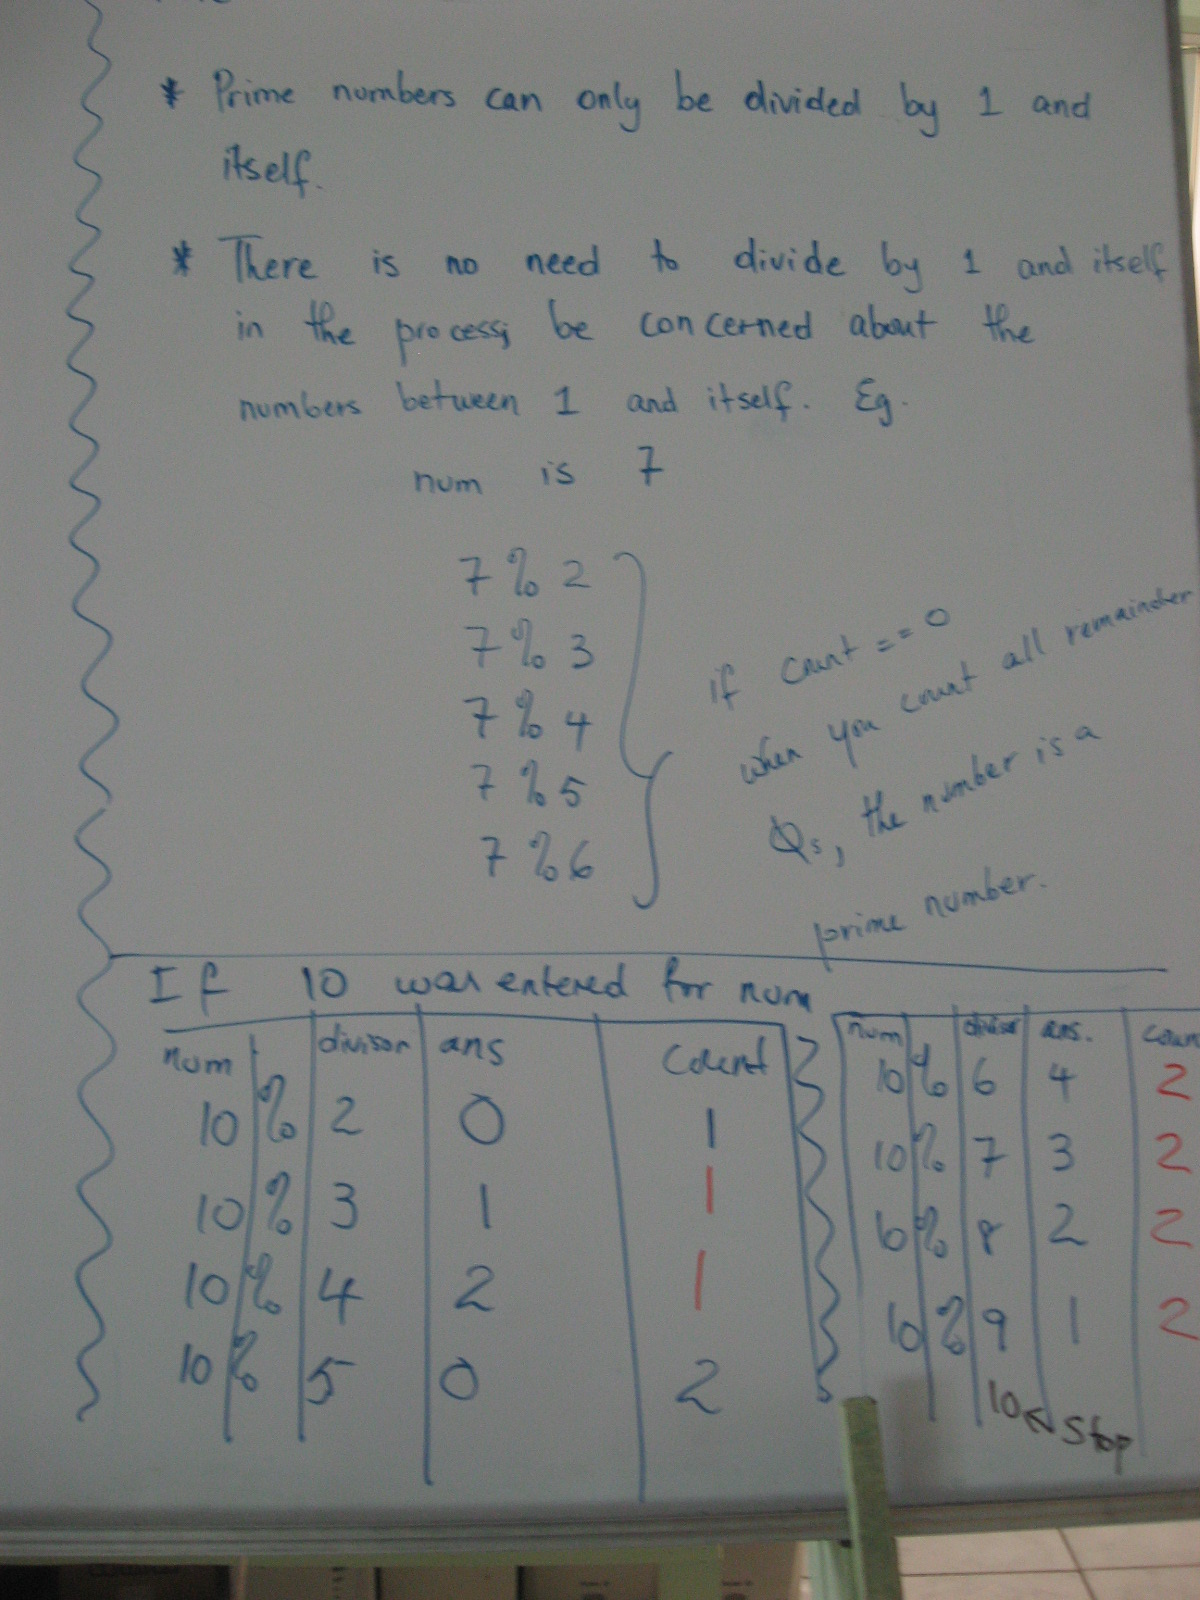 * Prime numbers can only be divided by 1 and
itself.
* There is no need to divide by 1 and itself
in the process, be concerned about the
numbers between 1 and itself. Eg.
num is 7
7 % 2
7 % 3
7 % 4
7 % 5
7 % 6
if count == 0
when you count all remainder
0s, the number is a
prime number.
If 10 was entered for num
num divisor ans count
10 % 2 0 1
10 % 3 1 1
10 % 4 2 1
10 % 5 0 2
num divisor ans. coun
10 % 6 4 2
10 % 7 3 2
10 % 8 2 2
10 % 9 1 2
10 ← Stop